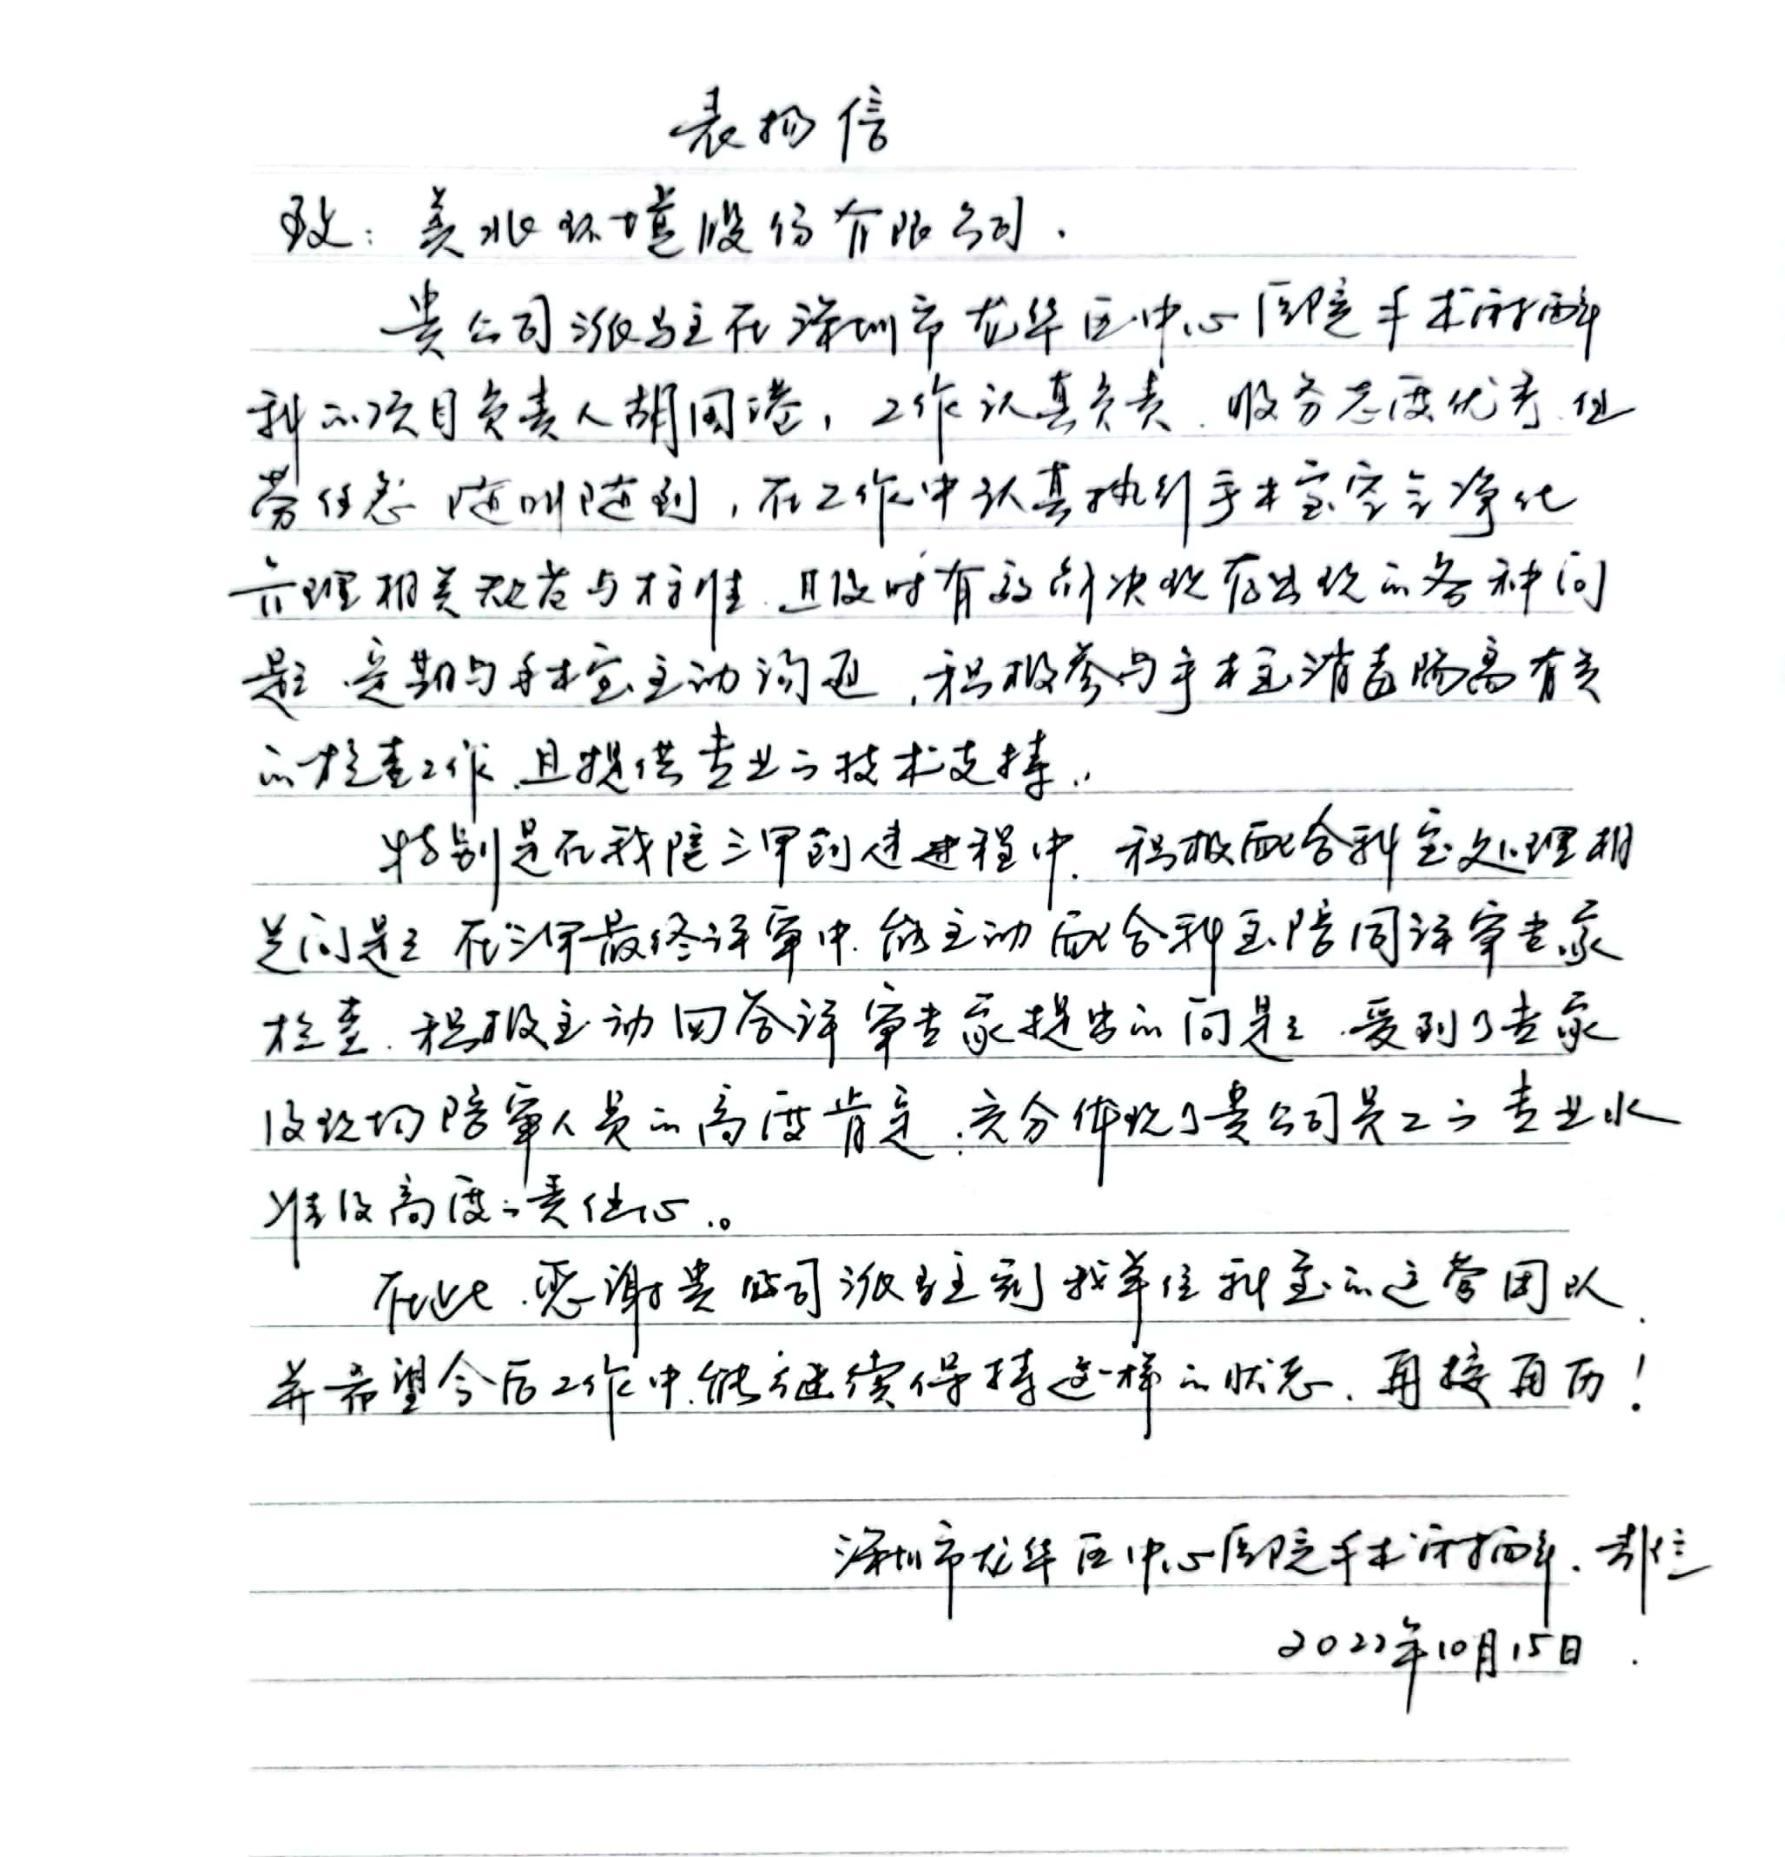 表扬信
致：美兆环境股份有限公司.
贵公司派驻在深圳市龙华区中心医院手术麻醉
科的项目负责人胡国港，工作认真负责.服务态度优秀.任
劳任怨 随叫随到，在工作中认真执行手术室空气净化
管理相关规范与标准.且及时有效解决现存出现的各种问
题.定期与手术室主动沟通，积极参与手术室消毒隔离有关
的检查工作.且提供专业的技术支持.
特别是在我院三甲创建进程中.积极配合科室处理相
关问题 在三甲最终评审中.能主动配合科室陪同评审专家
检查.积极主动回答评审专家提出的问题.受到了专家
及现场陪审人员的高度肯定.充分体现了贵公司员工的专业水
准及高度的责任心。
在此.感谢贵公司派驻到我单位科室的运营团队.
并希望今后工作中.能继续保持这样的状态.再接再历！
深圳市龙华区中心医院手术麻醉.
2022年10月15日.